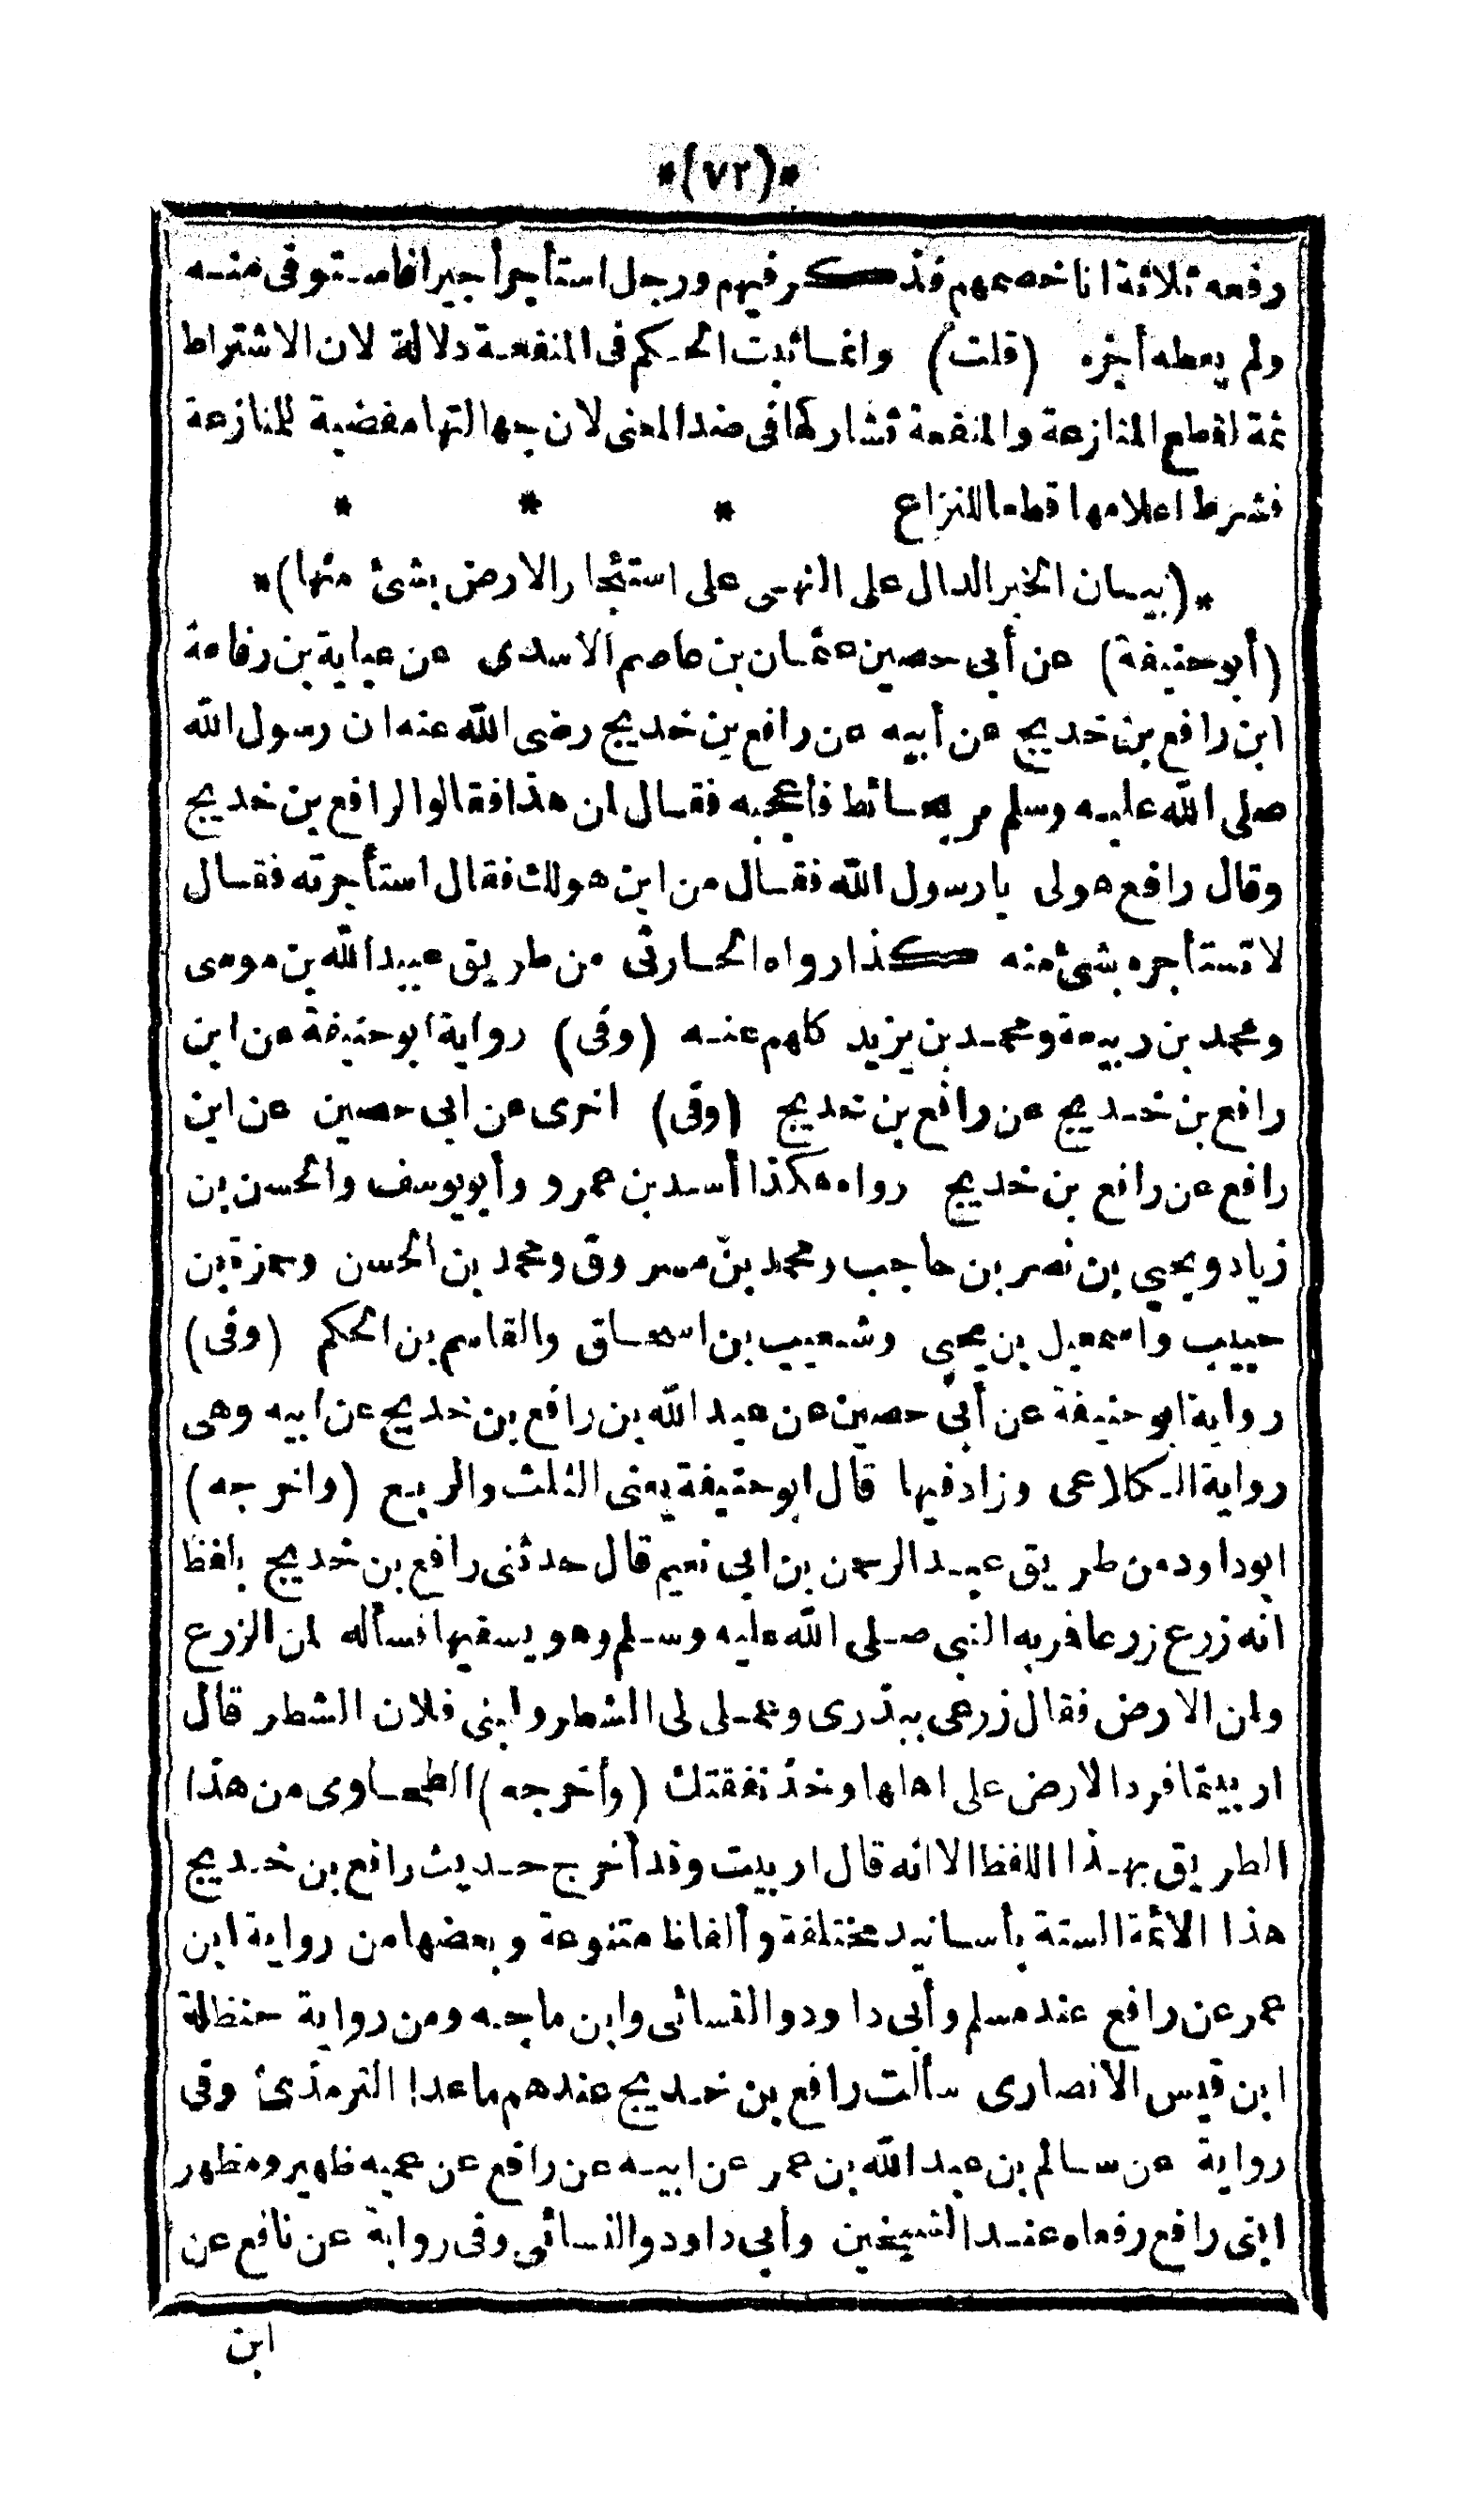 *(٧٢)*
رفعه ثلاثة انا خصمهم فذكر فيهم ورجل استأجر أجيرا فاستوفى منه
ولم يعطه أجره (قلت) وانما ثبت الحكم فى المنفعة دلالة لان الاشتراط
ثمة لقطع المنازعة والمنفعة تشاركها فى هذا المعنى لان جهالتها مفضية للمنازعة
فشرط اعلامها قطعا للنزاع * * *
*(بيان الخبر الدال على النهى على استئجار الارض بشئ منها)*
(أبو حنيفة) عن أبى حصين عثمان بن عاصم الاسدى عن عباية بن رفاعة
ابن رافع بن خديج عن أبيه عن رافع بن خديج رضى الله عنه ان رسول الله
صلى الله عليه وسلم مر بحائط فأعجبه فقال لمن هذا فقالوا لرافع بن خديج
وقال رافع هو لى يا رسول الله فقال من اين هو لك فقال استأجرته فقال
لا تستأجره بشئ منه كذا رواه الحارثى من طريق عبيد الله بن موسى
ومحمد بن ربيعة ومحمد بن يزيد كلهم عنه (وفى) رواية ابو حنيفة عن ابن
رافع بن خديج عن رافع بن خديج (وفى) اخرى عن ابى حصين عن ابن
رافع عن رافع بن خديج رواه هكذا أسد بن عمرو وأبو يوسف والحسن بن
زياد ويحيى بن نصر بن حاجب ومحمد بن مسروق ومحمد بن الحسن وحمزة بن
حبيب واسمعيل بن يحيى وشعيب بن اسحاق والقاسم بن الحكم (وفى)
رواية ابو حنيفة عن أبى حصين عن عبد الله بن رافع بن خديج عن ابيه وهى
رواية الكلاعى وزاد فيها قال ابو حنيفة يعنى الثلث والربع (واخرجه)
ابو داود من طريق عبد الرحمن بن ابى نعيم قال حدثنى رافع بن خديج بلفظ
انه زرع زرعا فمر به النبى صلى الله عليه وسلم وهو يسقيها فسأله لمن الزرع
ولمن الارض فقال زرعى ببذرى وعملى لى الشطر ولبنى فلان الشطر قال
اربيتما فرد الارض على اهلها وخذ نفقتك (وأخرجه) الطحاوى من هذا
الطريق بهذا اللفظ الا انه قال اربيت وقد أخرج حديث رافع بن خديج
هذا الائمة الستة بأسانيد مختلفة وألفاظ متنوعة وبعضها من رواية ابن
عمر عن رافع عند مسلم وأبى داود والنسائى وابن ماجه ومن رواية حنظلة
ابن قيس الانصارى سألت رافع بن خديج عندهم ماعدا الترمذى وفى
رواية عن سالم بن عبد الله بن عمر عن ابيه عن رافع عن عميه ظهير ومظهر
ابنى رافع رفعاه عند الشيخين وأبى داود والنسائى وفى رواية عن نافع عن
ابن